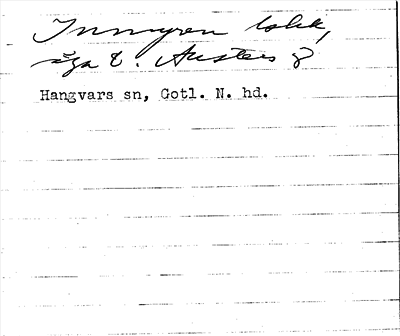 Inmyren lokk,
äga t. Austers 8
Hangvars sn, Gotl. N. hd.